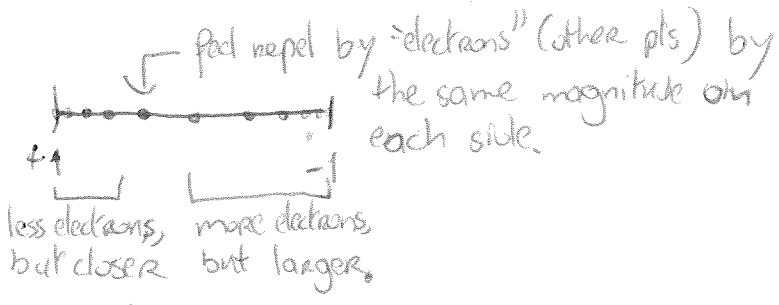 feel repel by "electrons" (other pts) by
the same magnitude on
each side.
+1
-1
less electrons, more electrons,
but closer but larger.